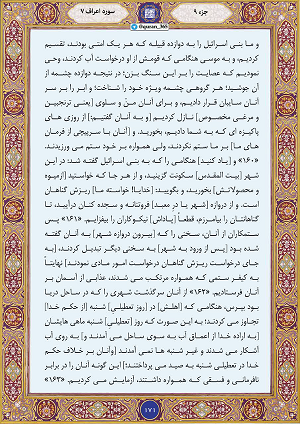 جزء ۹
سوره اعراف ۷
@quran_365
و ما بنی اسرائیل را به دوازده قبیله که هر یک امتی بودند، تقسیم
کردیم، و به موسی هنگامی که قومش از او درخواست آب کردند، وحی
نمودیم که عصایت را بر این سنگ بزن؛ در نتیجه دوازده چشمه از
آن جوشید؛ هر گروهی چشمه ویژه خود را شناخت؛ و ابر را بر سر
آنان سایبان قرار دادیم، و برای آنان منّ و سلوی [یعنی ترنجبین
و مرغی مخصوص] نازل کردیم [و به آنان گفتیم:] از روزی های
پاکیزه ای که به شما دادیم، بخورید، و [آنان با سرپیچی از فرمان
های ما] بر ما ستم نکردند، ولی همواره بر خود ستم می ورزیدند.
«۱۶۰» و [یاد کنید] هنگامی را که به بنی اسرائیل گفته شد: در این
شهر [بیت المقدس] سکونت گزینید، و از هر جا که خواستید [ازمیوه
و محصولاتش] بخورید، و بگویید: [خدایا! خواسته ما] ریزش گناهان
است. و از دروازه [شهر یا در معبد] فروتنانه و سجده کنان درآیید، تا
گناهانتان را بیامرزم، قطعاً [پاداش] نیکوکاران را بیفزایم. «۱۶۱» پس
ستمکاران از آنان، سخنی را که [بیرون دروازه شهر] به آنان گفته
شده بود [پس از ورود به شهر] به سخنی دیگر تبدیل کردند، [به
جای درخواست ریزش گناهان درخواست امور مادی نمودند] نهایتاً
به کیفر ستمی که همواره مرتکب می شدند، عذابی از آسمان بر
آنان فرستادیم. «۱۶۲» از آنان سرگذشت شهری را که در ساحل دریا
بود بپرس، هنگامی که [اهلش] در [روز تعطیلی] شنبه [از حکم خدا]
تجاوز می کردند؛ به این صورت که روز [تعطیلی] شنبه ماهی هایشان
[به اراده خدا از اعماق آب به سوی ساحل می آمدند و] به روی آب
آشکار می شدند و غیر شنبه ها نمی آمدند [وآنان بر خلاف حکم
خدا در تعطیلی شنبه به صید می پرداختند؛] این گونه آنان را در برابر
نافرمانی و فسقی که همواره داشتند، آزمایش می کردیم. «۱۶۳»
۱۷۱